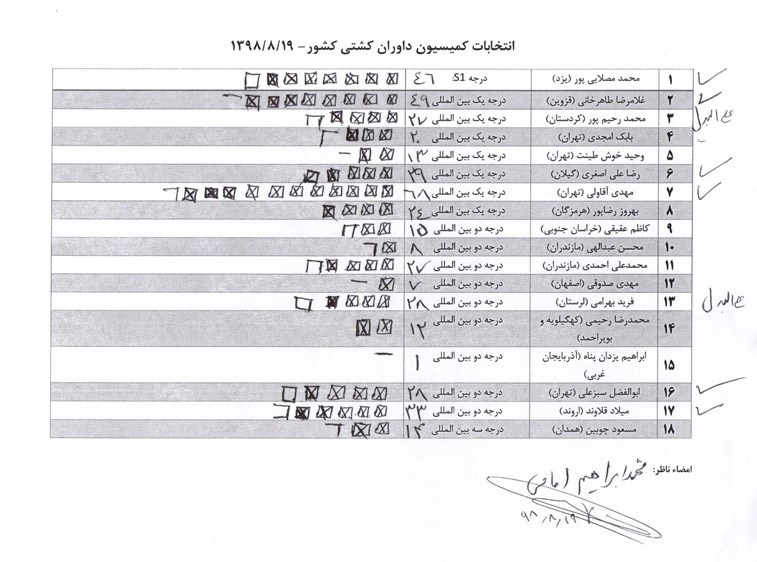 انتخابات کمیسیون داوران کشتی کشور - ۱۳۹۸/۸/۱۹
۱ محمد مصلایی پور (یزد) درجه S1 ۴۶
۲ غلامرضا طاهرخانی (قزوین) درجه یک بین المللی ۴۹
۳ محمد رحیم پور (کردستان) درجه یک بین المللی ۲۷ علی البدل
۴ بابک امجدی (تهران) درجه یک بین المللی ۲۰
۵ وحید خوش طینت (تهران) درجه یک بین المللی ۱۳
۶ رضا علی اصغری (گیلان) درجه یک بین المللی ۳۹
۷ مهدی آقاولی (تهران) درجه یک بین المللی ۶۸
۸ بهروز رضاپور (هرمزگان) درجه یک بین المللی ۲۴
۹ کاظم عقیقی (خراسان جنوبی) درجه دو بین المللی ۱۵
۱۰ محسن عبدالهی (مازندران) درجه دو بین المللی ۸
۱۱ محمدعلی احمدی (مازندران) درجه دو بین المللی ۲۷
۱۲ مهدی صدوقی (اصفهان) درجه دو بین المللی ۷
۱۳ فرید بهرامی (لرستان) درجه دو بین المللی ۲۸ علی البدل
۱۴ محمدرضا رحیمی (کهگیلویه و درجه دو بین المللی ۱۲
بویراحمد)
۱۵ ابراهیم یزدان پناه (آذربایجان درجه دو بین المللی ۱
غربی)
۱۶ ابوالفضل سبزعلی (تهران) درجه دو بین المللی ۲۸
۱۷ میلاد قلاوند (اروند) درجه دو بین المللی ۳۳
۱۸ مسعود چوبین (همدان) درجه سه بین المللی ۱۴
امضاء ناظر: محمد ابراهیم امامی
۹۸/۸/۱۹